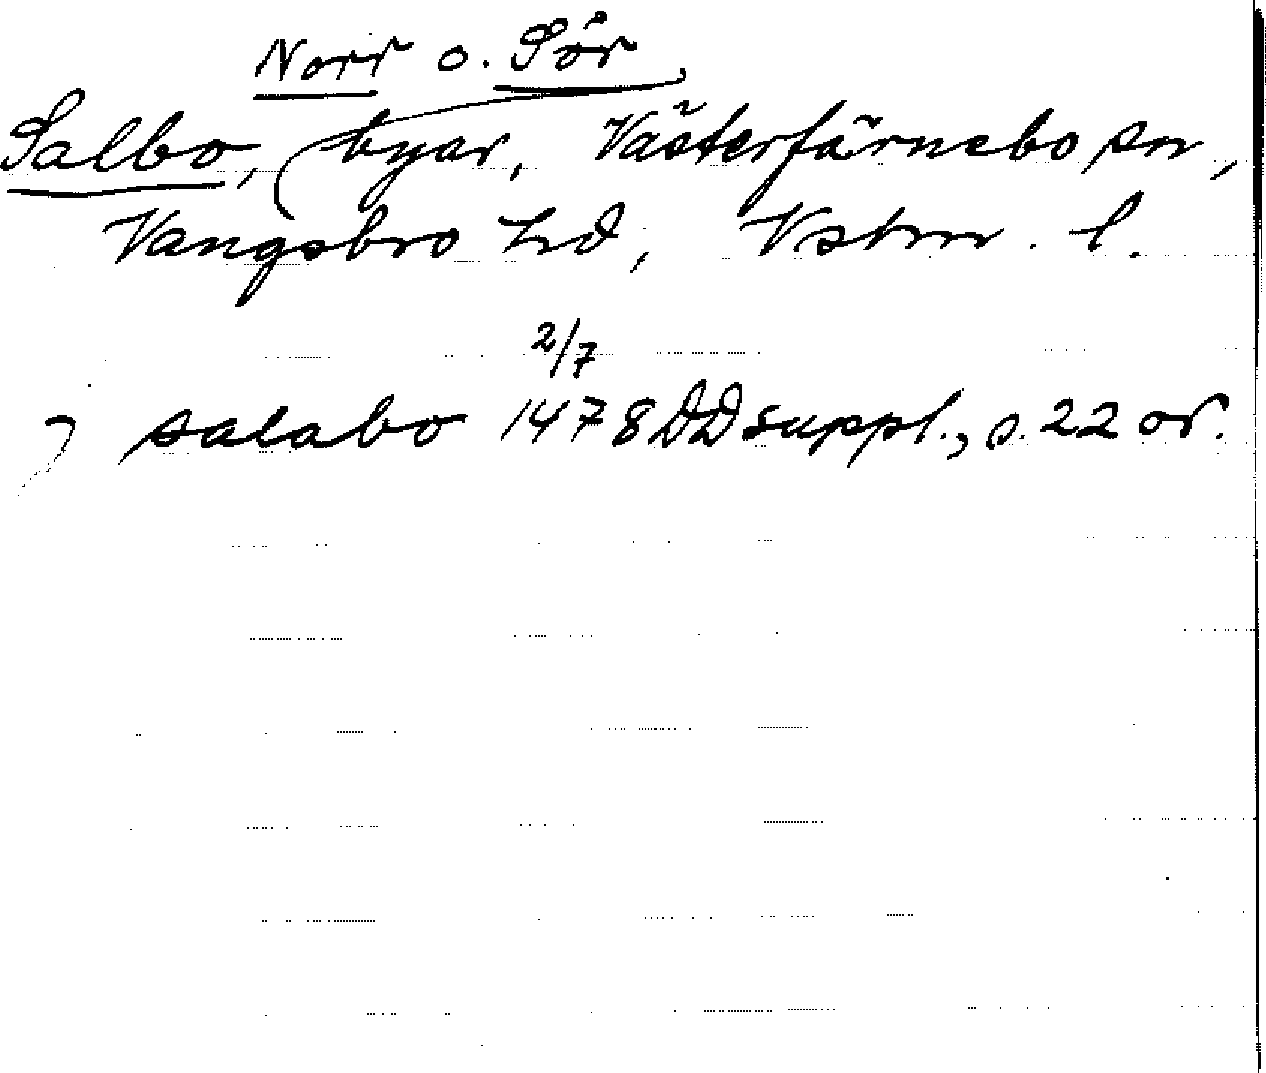 Norr o. Sör
Salbo, byar, Västerfärnebo sn,
Vangsbro hd, Vstm. l.
2/7
) salabo 1478 DD suppl., s. 22 or.